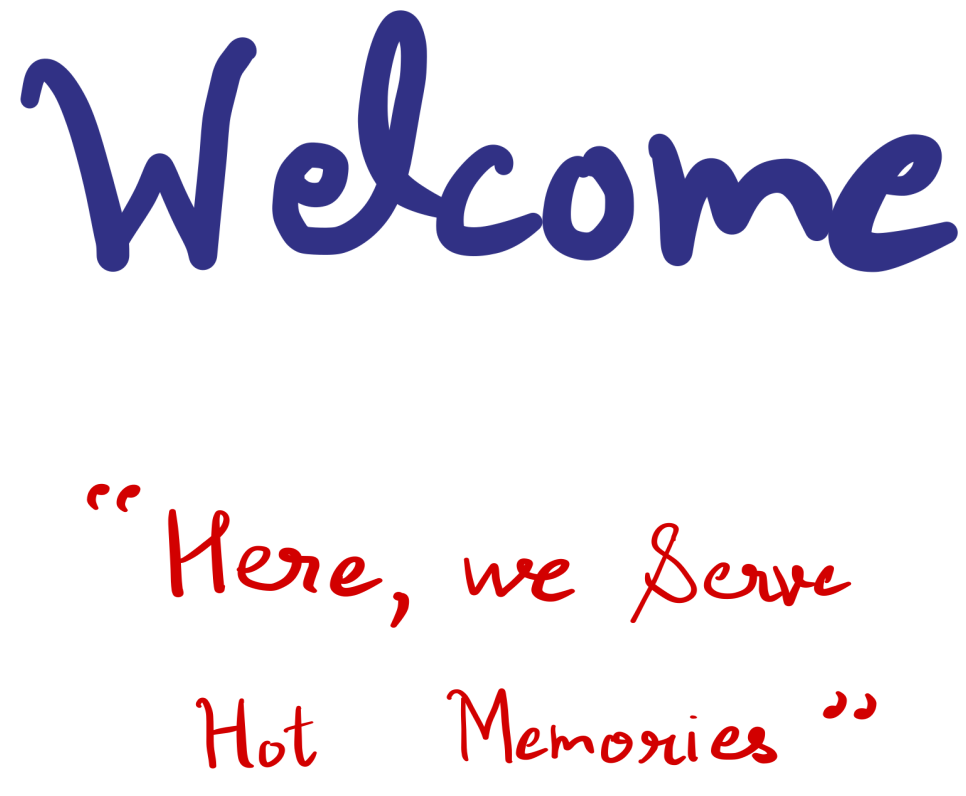 Welcome
“Here, we Serve
Hot Memories”